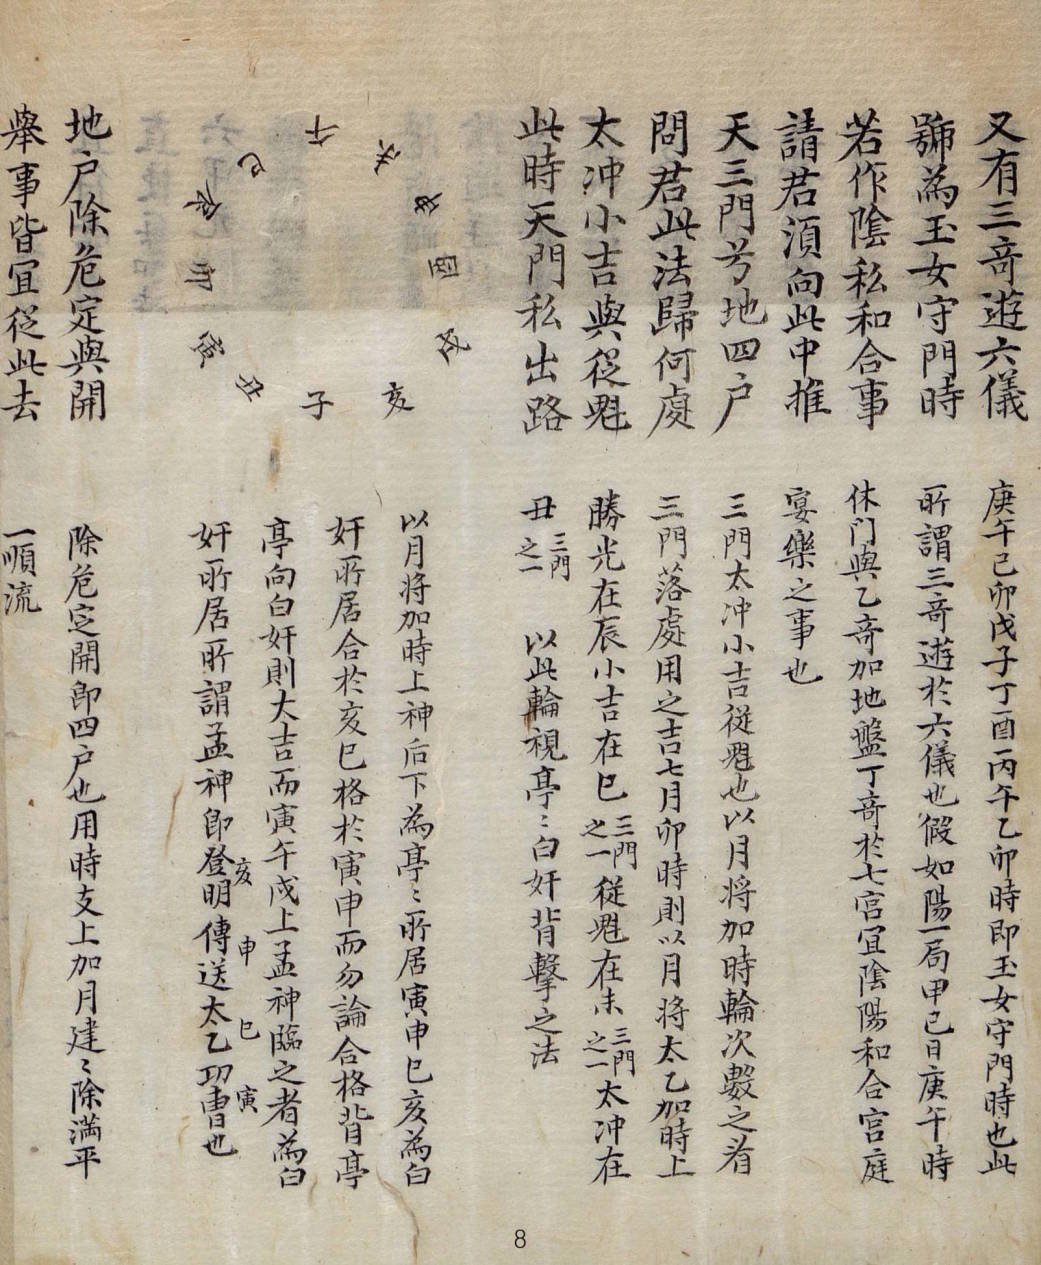 又有三奇遊六儀
號為玉女守門時
若作陰私和合事
請君須向此中推
天三門兮地四户
問君此法歸何處
太冲小吉與從魁
此時天門私出路
午
未
申
酉
戌
亥
子
丑
寅
卯
辰
巳
地户除危定與開
舉事皆宜從此去
庚午己卯戊子丁酉丙午乙卯時即玉女守門時也此
所謂三奇遊於六儀也假如陽一局甲己日庚午時
休门與乙奇加地盤丁奇於七宮宜陰陽和合宮庭
宴樂之事也
三門太冲小吉從魁也以月将加時輪次數之看
三門落處用之吉七月卯時則以月将太乙加時上
勝光在辰小吉在巳三門之一從魁在未三門之一太冲在
丑三門之一 以此輪視亭〻白奸背擊之法
以月将加時上神后下為亭〻所居寅申巳亥為白
奸所居合於亥巳格於寅申而勿論合格背亭
亭向白奸則大吉而寅午戌上孟神臨之者為白
奸所居所謂孟神即登明亥傳送申太乙巳功曹寅也
除危定開即四户也用時支上加月建〻除满平
一順流
8